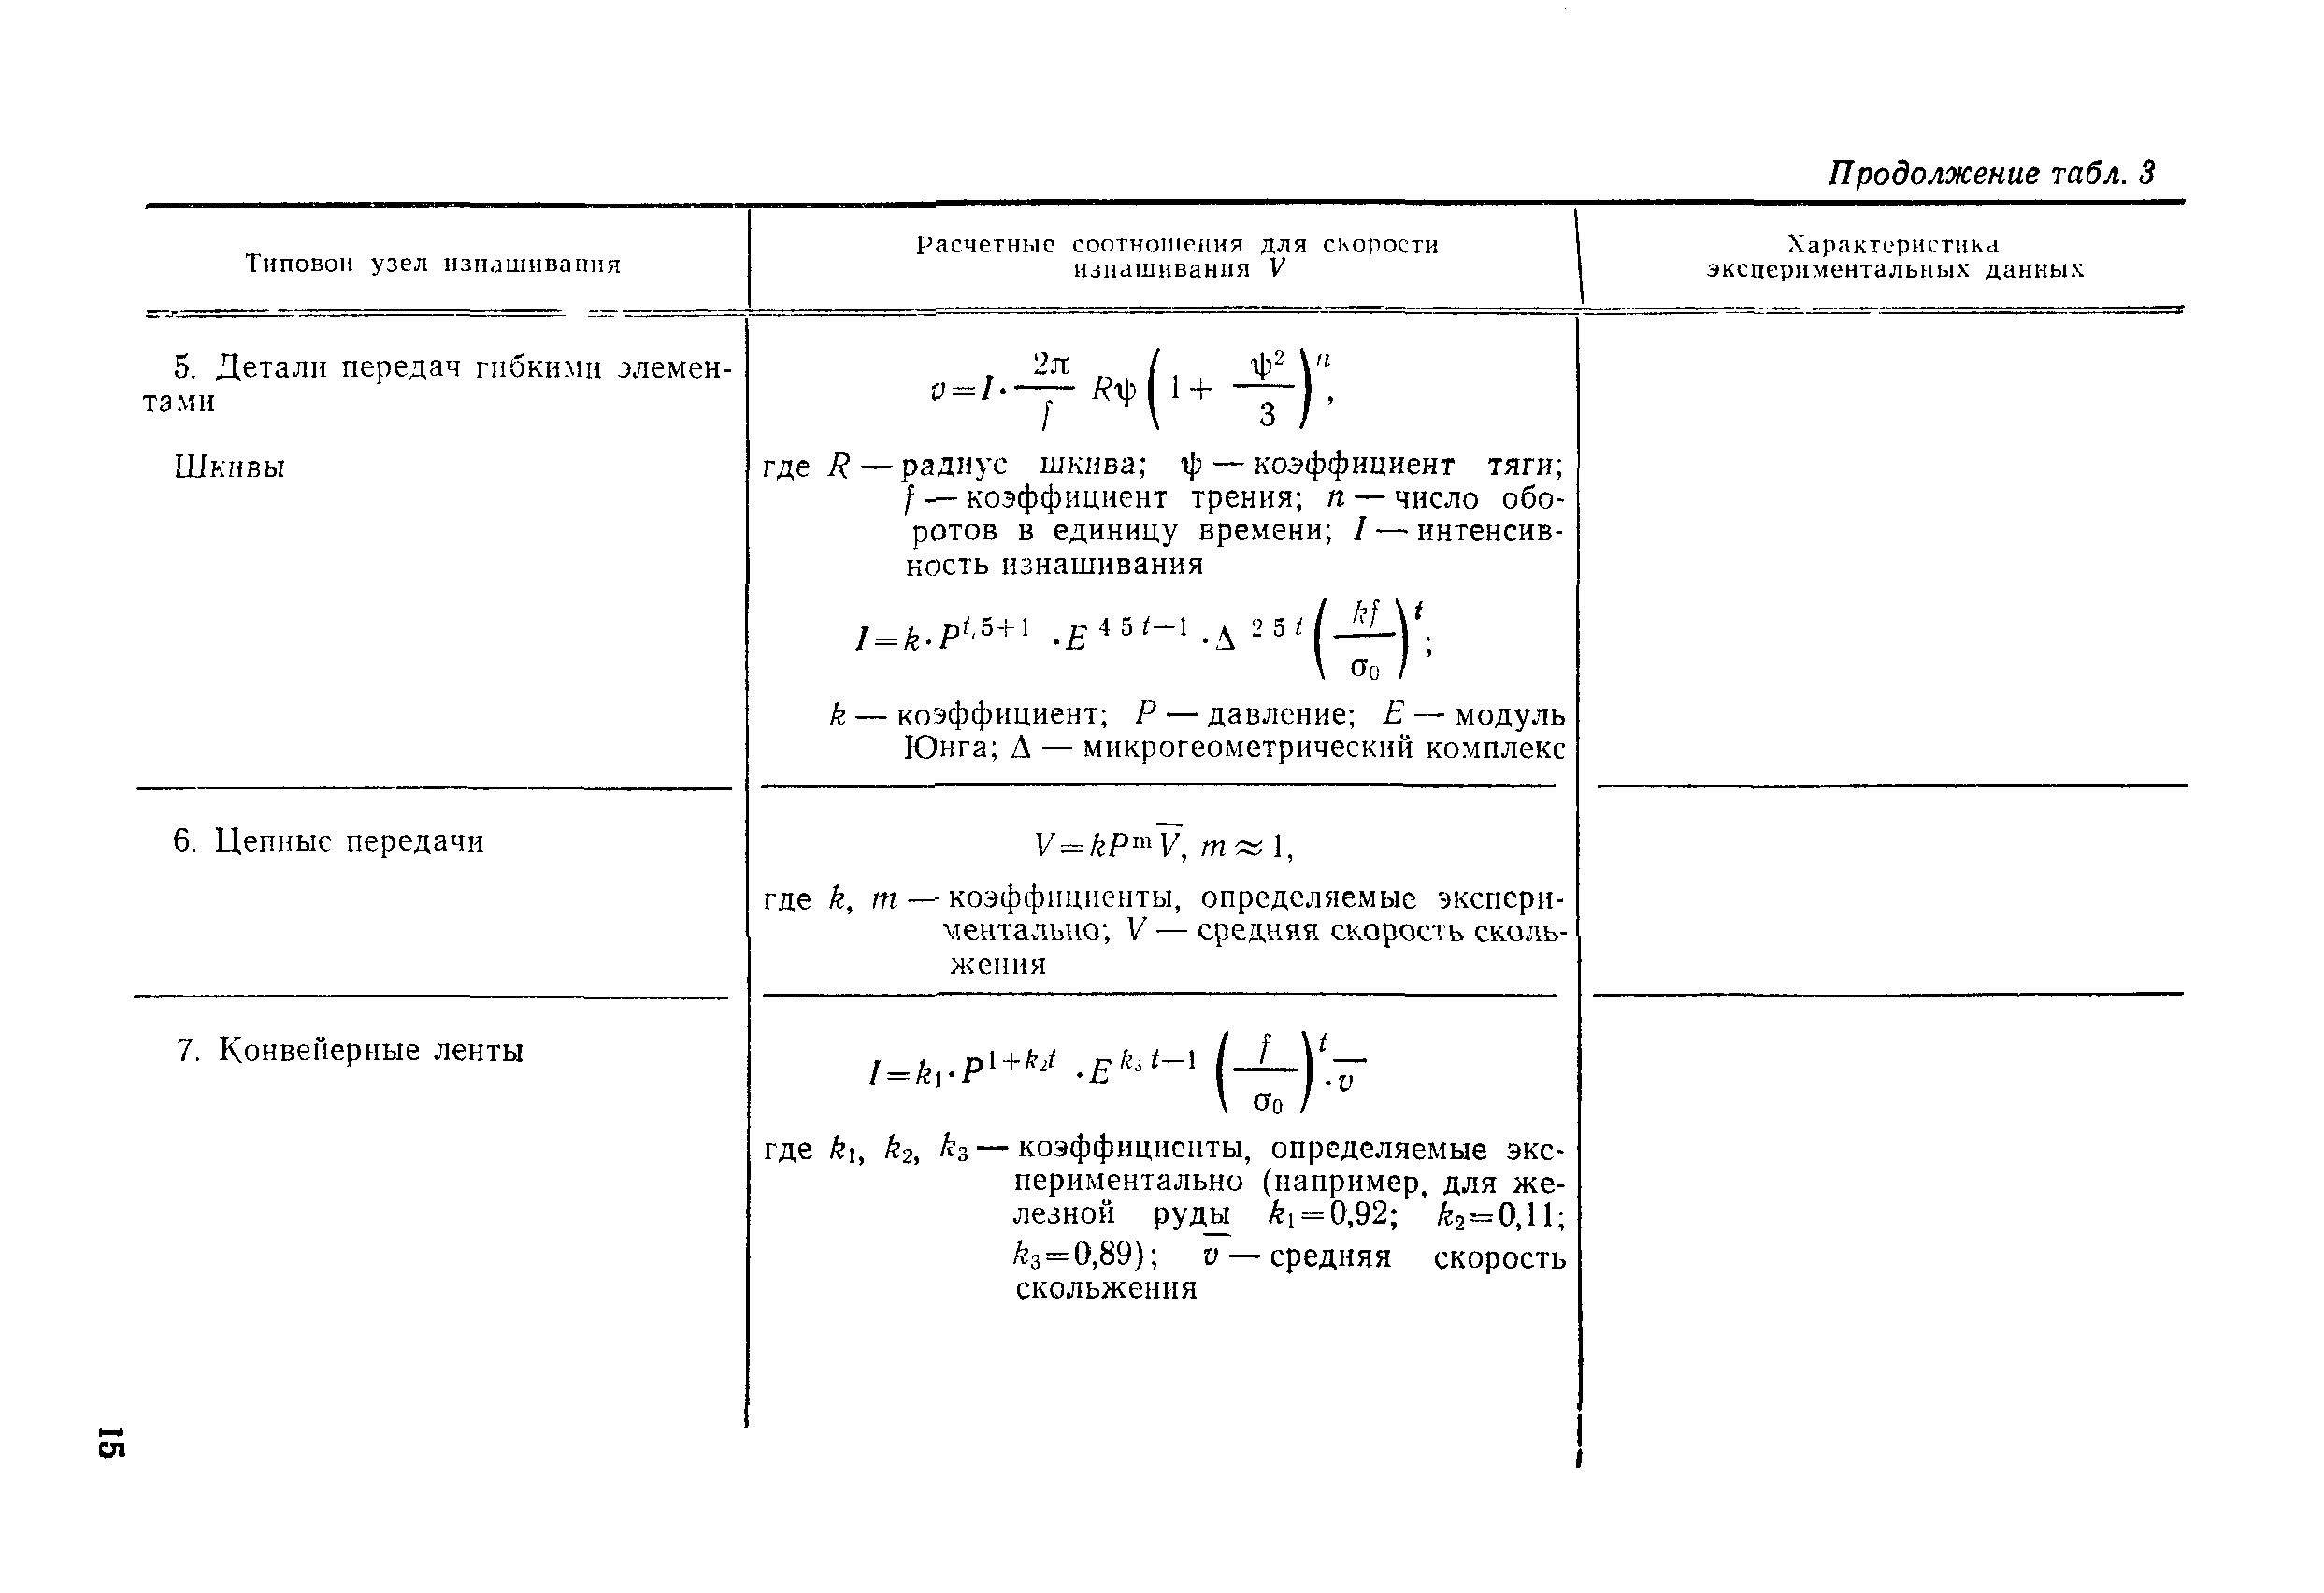 Продолжение табл. 3
Типовой узел изнашивания
Расчетные соотношения для скорости
изнашивания V
Характеристика
экспериментальных данных
5. Детали передач гибкими элемен-
тами
Шкивы
v = I · 2π/f Rψ (1 + ψ²/3)ⁿ,
где R — радиус шкива; ψ — коэффициент тяги;
f — коэффициент трения; n — число обо-
ротов в единицу времени; I — интенсив-
ность изнашивания
I = k · P^{t,5+1} · E^{4 5 t−1} · Δ^{2 5 t} (kf/σ₀)^t;
k — коэффициент; P — давление; E — модуль
Юнга; Δ — микрогеометрический комплекс
6. Цепные передачи
V = kPᵐV̅, m ≈ 1,
где k, m — коэффициенты, определяемые экспери-
ментально; V — средняя скорость сколь-
жения
7. Конвейерные ленты
I = k₁ · P^{1+k₂t} · E^{k₃t−1} (f/σ₀)^t · v̅
где k₁, k₂, k₃ — коэффициенты, определяемые экс-
периментально (например, для же-
лезной руды k₁=0,92; k₂=0,11;
k₃=0,89); v̅ — средняя скорость
скольжения
15